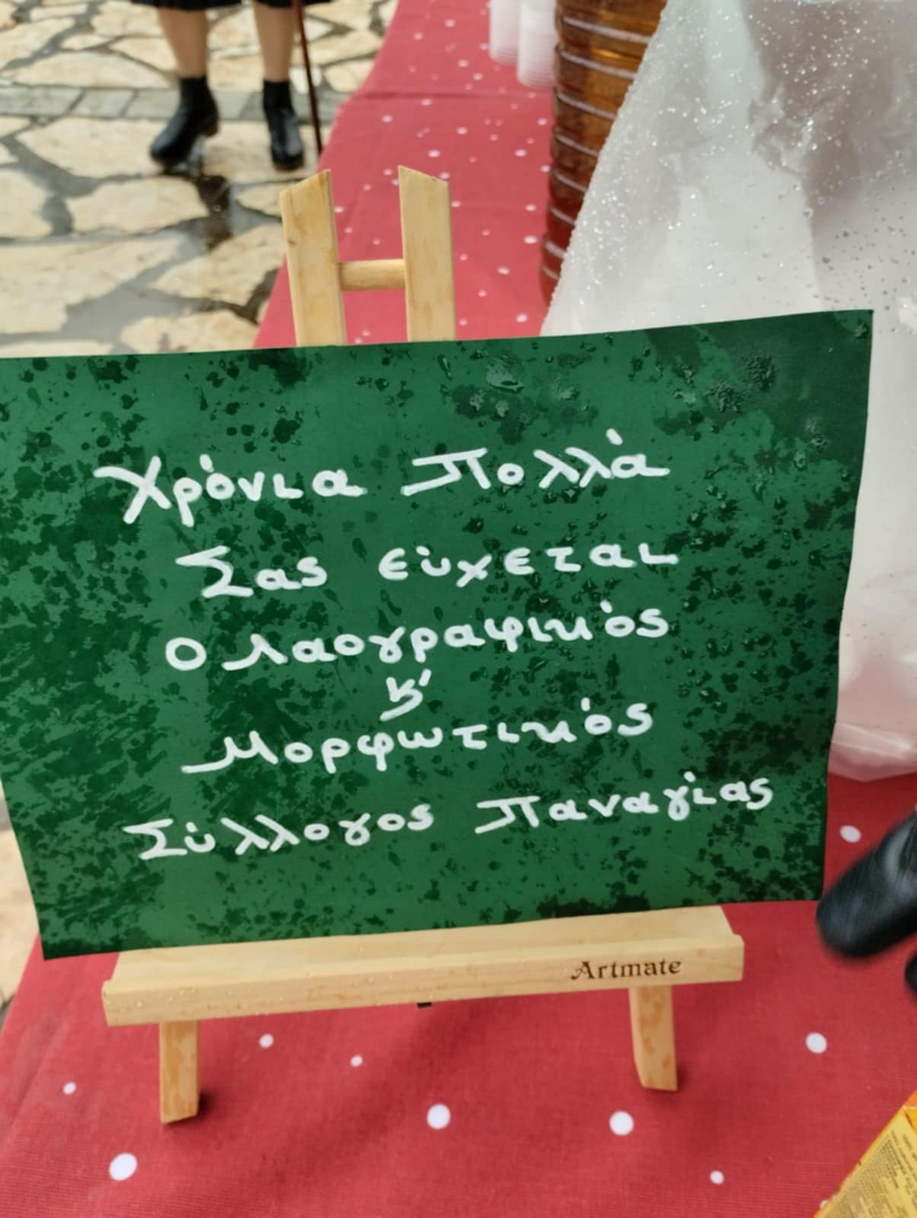 Χρόνια Πολλά
Σας εύχεται
Ο Λαογραφικός
κ'
Μορφωτικός
Σύλλογος Παναγίας
Artmate